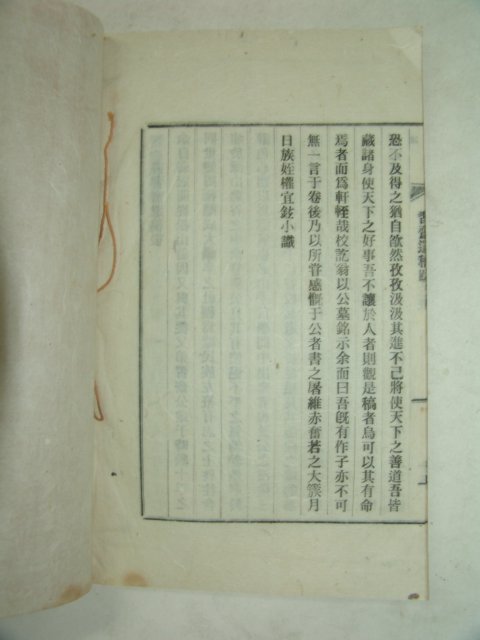 恐不及得之猶自欿然孜孜汲汲其進不已將使天下之善道吾皆
藏諸身使天下之好事吾不讓於人者則觀是稿者烏可以其有命
焉者而爲軒輊哉校訖翁以公墓銘示余而曰吾旣有作子亦不可
無一言于卷後乃以所嘗感慨于公者書之屠維赤奮若之大簇月
日族姪權宜鉉小識